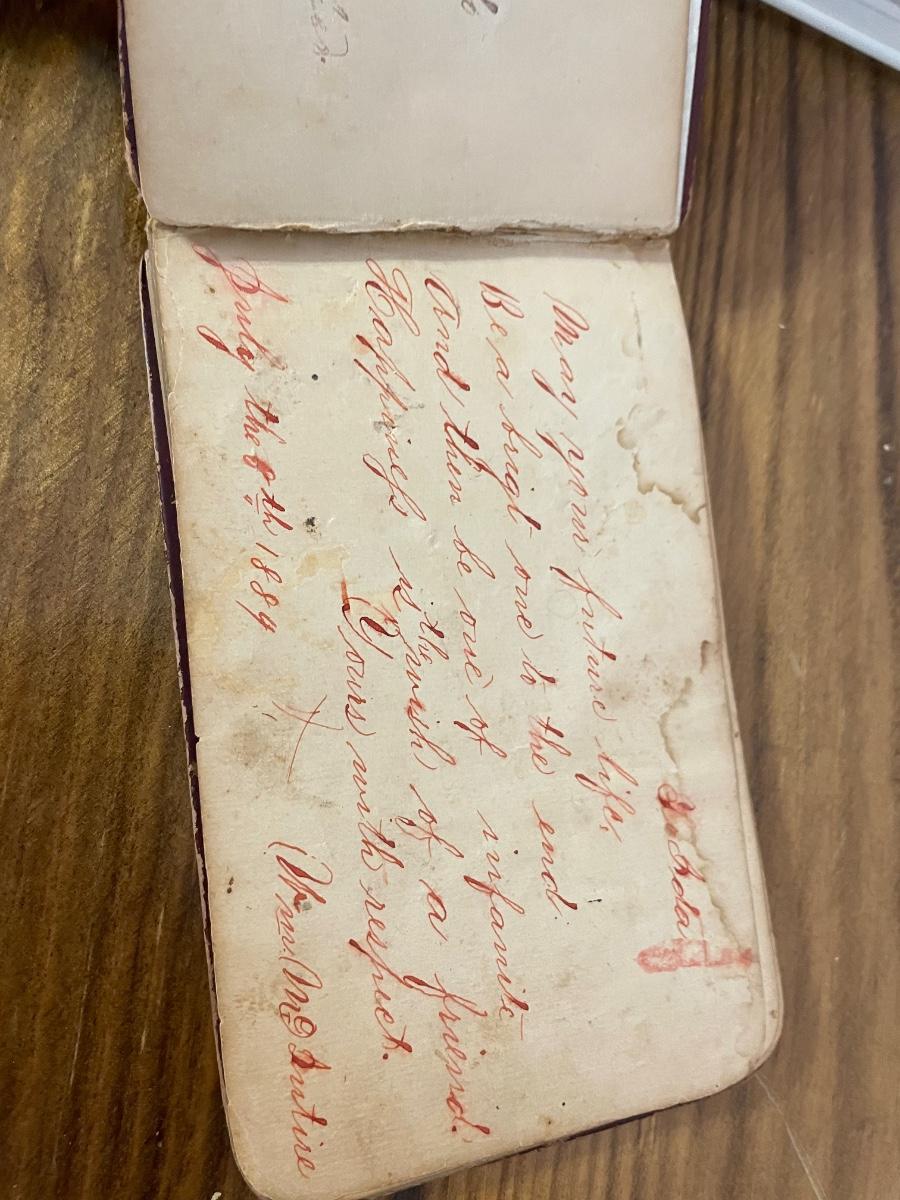 To Ada
May your future life,
Be a brigt one to the end.
And then be one of infamite
Happiness is the wish of a friend.
Yours with respect.
July the 6th 1889
Wm. Mc Intire